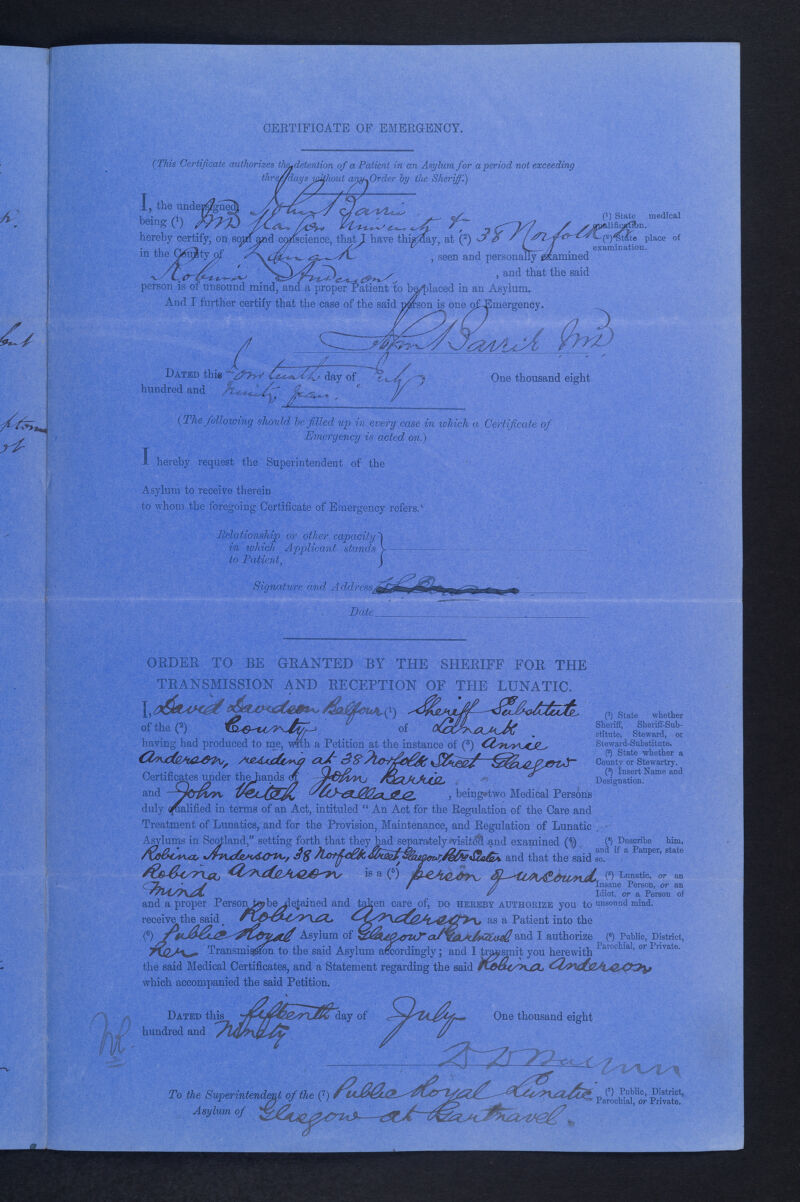 CERTIFICATE OF EMERGENCY.
(This Certificate authorizes the detention of a Patient in an Asylum for a period not exceeding
three days without any Order by the Sheriff.)
I, the undersigned, John Barrie
being (¹) MD Glasgow University &
(¹) State medical qualification.
hereby certify, on soul and conscience, that I have this day, at (²) 38 Norfolk St
(²) State place of examination.
in the County of Lanark, seen and personally examined
Robina Anderson, and that the said
person is of unsound mind, and a proper Patient to be placed in an Asylum.
And I further certify that the case of the said person is one of Emergency.
John Barrie MD
DATED this fourteenth day of July One thousand eight
hundred and ninety
(The following should be filled up in every case in which a Certificate of
Emergency is acted on.)
I hereby request the Superintendent of the
Asylum to receive therein
to whom the foregoing Certificate of Emergency refers.
Relationship or other capacity
in which Applicant stands
to Patient,
Signature and Address,
Date
ORDER TO BE GRANTED BY THE SHERIFF FOR THE
TRANSMISSION AND RECEPTION OF THE LUNATIC.
I, David Davidson Balfour (¹) Sheriff Substitute
(¹) State whether Sheriff, Sheriff-Substitute, Steward, or Steward-Substitute.
of the (²) County of Lanark
(²) State whether a County or Stewartry.
having had produced to me, with a Petition at the instance of (³) Annie
(³) Insert Name and Designation.
Anderson, residing at 38 Norfolk Street Glasgow
Certificates under the hands of John Barrie
and John Veitch Wallace, being two Medical Persons
duly qualified in terms of an Act, intituled "An Act for the Regulation of the Care and
Treatment of Lunatics, and for the Provision, Maintenance, and Regulation of Lunatic
Asylums in Scotland," setting forth that they had separately visited and examined (⁴)
(⁴) Describe him, and if a Pauper, state so.
Robina Anderson, 38 Norfolk Street, Glasgow, Petrs Sister and that the said
Robina Anderson is a (⁵) person of unsound
(⁵) Lunatic, or an Insane Person, or an Idiot, or a Person of unsound mind.
mind
and a proper Person to be detained and taken care of, DO HEREBY AUTHORIZE YOU to
receive the said Robina Anderson as a Patient into the
(⁶) Public Royal Asylum of Glasgow at Gartnavel and I authorize
(⁶) Public, District, Parochial, or Private.
her Transmission to the said Asylum accordingly; and I transmit you herewith
the said Medical Certificates, and a Statement regarding the said Robina Anderson
which accompanied the said Petition.
DATED this fifteenth day of July One thousand eight
hundred and Ninety
D D Balfour
To the Superintendent of the (⁷) Public Royal Lunatic
(⁷) Public, District, Parochial, or Private.
Asylum of Glasgow at Gartnavel.